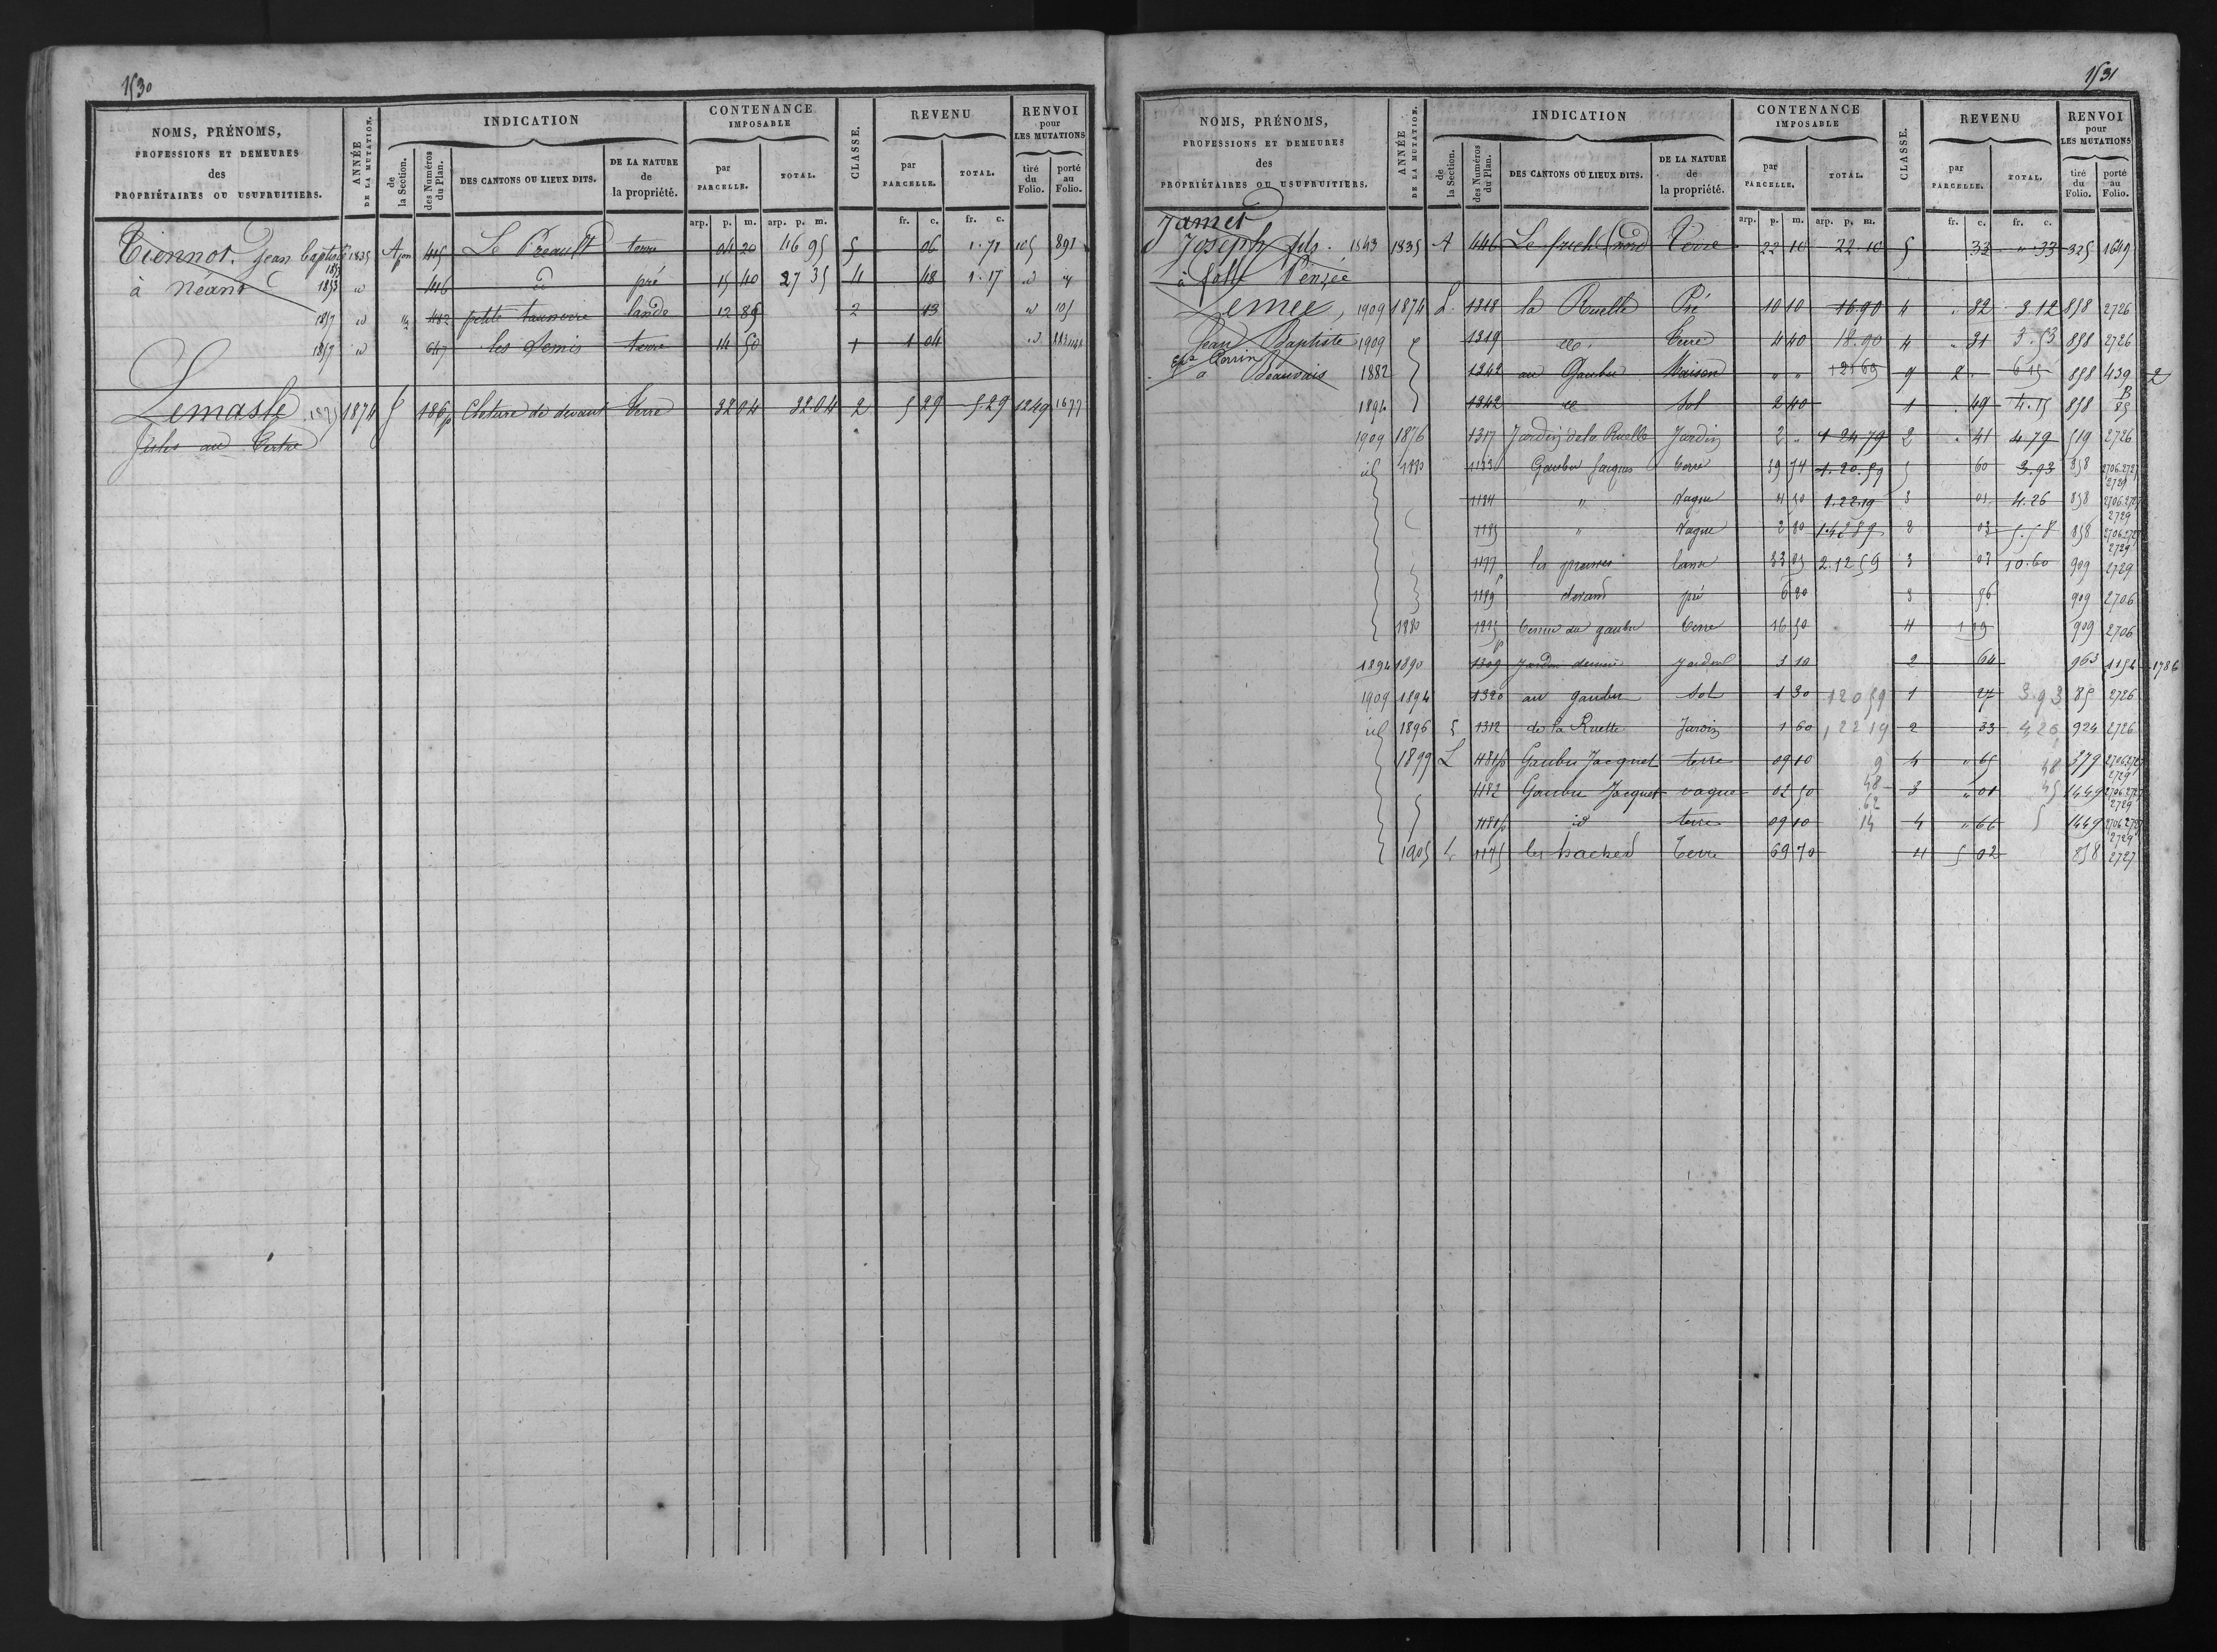 1530
NOMS, PRÉNOMS, PROFESSIONS ET DEMEURES des PROPRIÉTAIRES OU USUFRUITIERS.
ANNÉE DE LA MUTATION.
INDICATION
de la Section.
des Numéros du Plan.
DES CANTONS OU LIEUX DITS.
DE LA NATURE de la propriété.
CONTENANCE IMPOSABLE
par PARCELLE.
TOTAL.
CLASSE.
REVENU
par PARCELLE.
TOTAL.
RENVOI pour LES MUTATIONS
tiré du Folio.
porté au Folio.
arp. p. m. arp. p. m. fr. c. fr. c.
Tiennot Jean Baptiste 1835 A 445 Le Preault terre 04 20 46 95 5 06 1.71 105 891
à Néant 1853 id 446 d pré 15 40 27 35 4 48 1.17 id
1857 id 482 petite lande 12 85 2 13 id 105
1857 id 647 les Semis terre 14 50 1 1 04 id
Lemasle 1875 1874 186p Cloture de devant Terre 32 04 32.04 2 5 29 5.29 1249 1677
Jules au Tertre
1531
NOMS, PRÉNOMS, PROFESSIONS ET DEMEURES des PROPRIÉTAIRES OU USUFRUITIERS.
ANNÉE DE LA MUTATION.
INDICATION
de la Section.
des Numéros du Plan.
DES CANTONS OU LIEUX DITS.
DE LA NATURE de la propriété.
CONTENANCE IMPOSABLE
par PARCELLE.
TOTAL.
CLASSE.
REVENU
par PARCELLE.
TOTAL.
RENVOI pour LES MUTATIONS
tiré du Folio.
porté au Folio.
arp. p. m. arp. p. m. fr. c. fr. c.
Jamet
Joseph fils 1843 1835 A 446 Le friche (nord Terre 22 10 22 10 5 33 " 33 325 1649
à folle Pensée
Lemee, 1909 1874 L 1318 la Ruelle Pré 10 10 16.90 4 " 82 3.12 858 2726
Jean Baptiste 1909 1319 do Terre 4 40 18.90 4 " 31 3.53 858 2726
à Beauvais 1882 1342 au Gaubu Maison " " 9 2 " 858 439 2
1894 1342 Sol 2 40 1 . 49 4.15 858 85
1909 1876 1317 Jardin de la Ruelle Jardin 2 " 1 24 79 2 " 41 4.79 519 2726
id 1880 1183 Gaubu Jacques terre 39 74 1.20.59 5 60 3.93 858 2706.2727 2729
1184 " Vague 4 50 1.22.19 3 01 4.26 858 2706.2727 2729
1185 " Vague 2 80 1.42 89 3 03 5.58 858 2706.2727 2729
1177 les lande 83 85 2.12 59 3 03 10.60 909 2729
1189 devant pré 6 20 3 96 909 2706
1880 du gaubu terre 16 50 4 1 19 909 2706
1894 1890 1309 Jardin derriere Jardin 3 10 2 64 963 1154 1786
1909 1894 1320 au gaubu Sol 1 30 120 59 1 27 3.93 85 2726
id 1896 1312 de la Ruelle Jardin 1 60 1 22 19 2 33 4,26 924 2726
1899 L 1181p Gaubu Jacquet terre 09 10 9 4 " 65 48 379 2706.2727 2729
1182 Gaubu Jacquet vague 02 50 48 3 " 01 45 1449 2706.2727 2729
62
1181p id terre 09 10 14 4 " 66 5 1449 2706.2727 2729
1905 L 1175 les haches Terre 69 70 4 5 02 858 2727